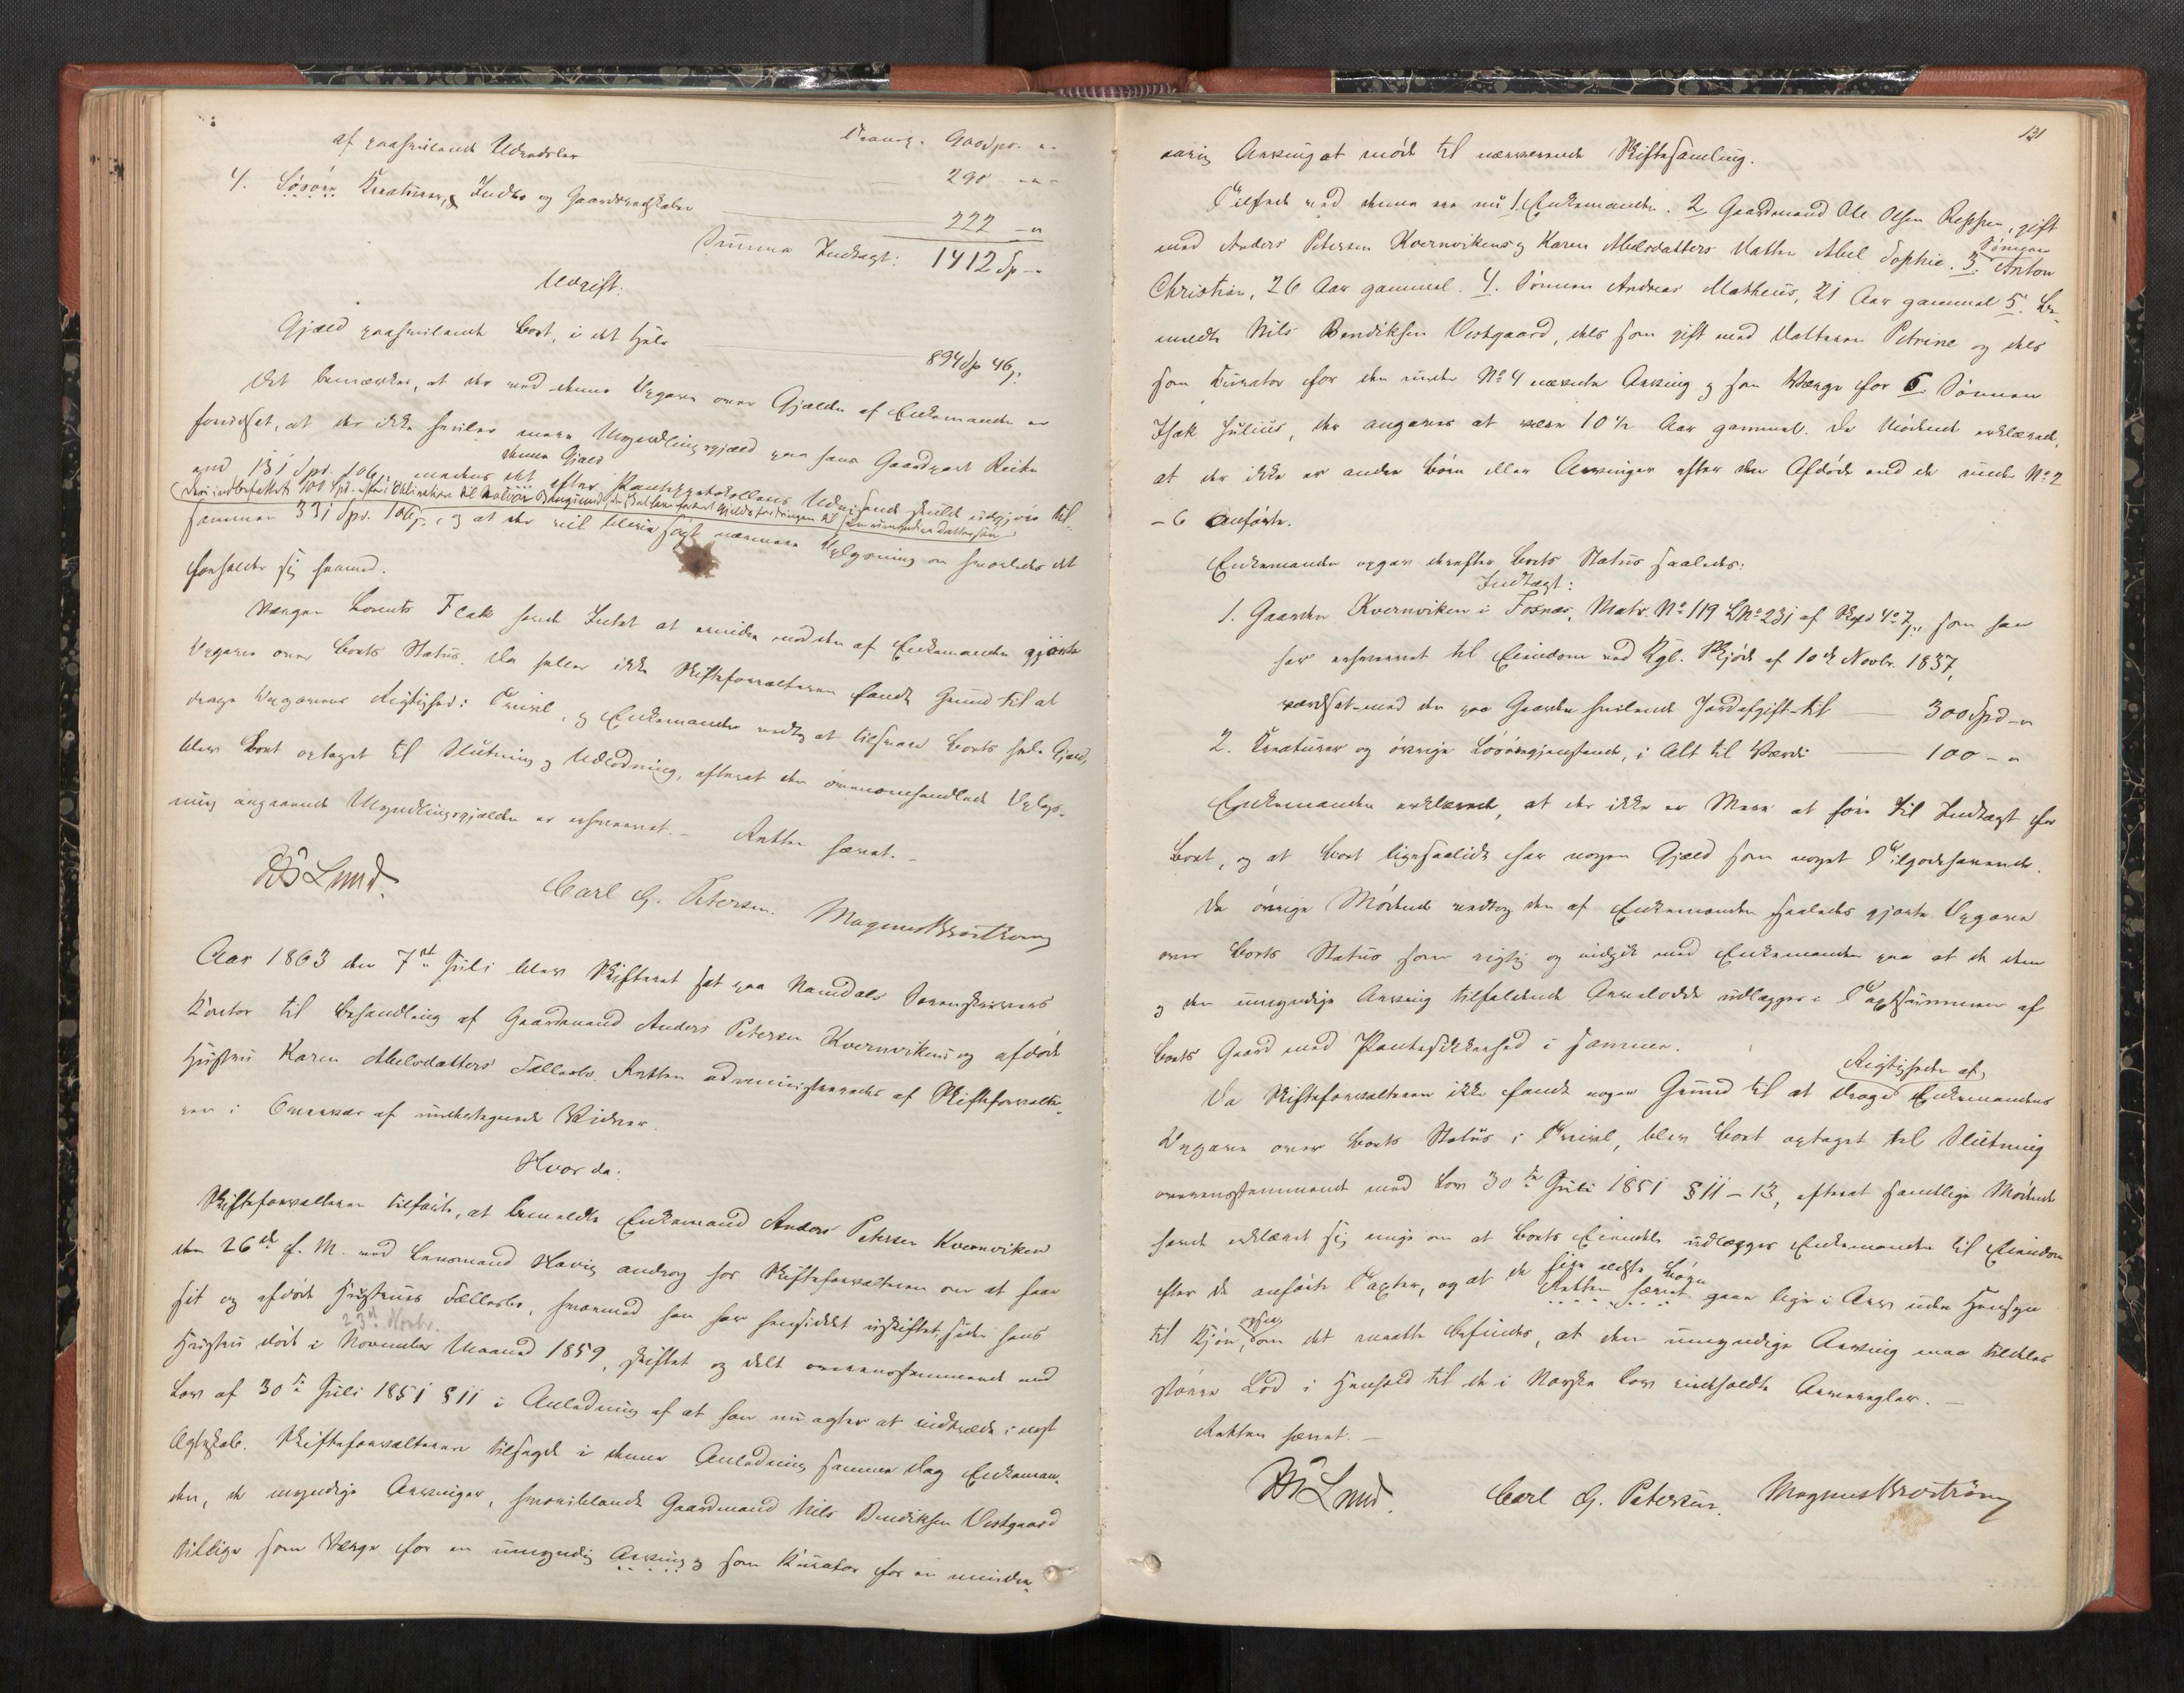 Transp. 900 Spd. "
af paahvilende Udredsler 290 - " -
4. Løsøre Kreaturer, Indbo og Gaardsredskaber 222 - "
Summa Indtægt: 1412 Sp - "
Udgift:
Gjæld paahvilende Boet, i det Hele 894 Sp 46 ß
Det bemærkes, at der ved denne Opgave over Gjælden af Enkemanden er
forudsat, at der ikke hviler mere Umyndlingsgjæld paa hans Gaardpart
end 131 Spd. 106 ß, medens
denne Gjæld
det efter Pantprotokollens Udvisende skulde udgjøre til-
sammen 331 Spd. 106 ß, og at der vil blive søgt nærmere Oplysning om hvorledes det
forholder sig hermed.
Værgen Lorents Flak havde Intet at erindre mod den af Enkemanden gjorte
Opgave over Boets Status. Da heller ikke Skifteforvalteren fandt Grund til at
drage Opgavens Rigtighed i Tvivl, og Enkemanden vedtog at tilsvare Boets hele Gjæld,
blev Boet optaget til Slutning og Udlodning, efterat den ovenomhandlede Oplys-
ning angaaende Umyndlingsgjælden er erhvervet. - Retten hævet. -
Lund. Carl G. Petersen. Magnus Brostrøm
Aar 1863 den 7de Juli blev Skifteret sat paa Namdals Sorenskriveres
Kontor til Behandling af Gaardmand Anders Petersen Kvernvikens og afdøde
Hustru Karen Abelsdatters Fællesbo. Retten administreredes af Skifteforvalte-
ren i Overvær af undertegnede Vidner.
Hvor da:
Skifteforvalteren tilførte, at bemeldte Enkemand Anders Petersen Kvernviken
den 26de f. M. ved Lensmand Havig androg for Skifteforvalteren om at faae
sit og afdøde Hustrues Fællesbo, hvormed han har hensiddet uskiftet, siden hans
23de Novbr.
Hustru døde i November Maaned 1859, skiftet og delt overensstemmende med
Lov af 30te Juli 1851 § 11 i Anledning af at han nu agter at indtræde i nyt
Ægteskab. Skifteforvalteren tilsagde i denne Anledning samme Dag Enkeman-
den, de myndige Arvinger, hvoriblandt Gaardmand Nils Bendiksen Vestgaard
tillige som Værge for en umyndig Arving og som Kurator for en mindre-
131
aarig Arving at møde til nærværende Skiftesamling.
Tilstede ved denne var nu 1. Enkemanden. 2. Gaardmand Ole Olsen Reppen, gift
med Anders Petersen Kvernvikens og Karen Abelsdatters Datter Abel Sophie. 3. Sønnen Anton
Christian, 26 Aar gammel. 4. Sønnen Andreas Matheus, 21 Aar gammel 5. Be-
meldte Nils Bendiksen Vestgaard, dels som gift med Datteren Petrine og dels
som Kurator for den under No 4 nævnte Arving og som Værge for 6. Sønnen
Isak Julius, der angaves at være 10 1/2 Aar gammel. De Mødende erklærede,
at der ikke er andre Børn eller Arvinger efter den Afdøde end de under No 2
- 6 Anførte.
Enkemanden opgav derefter Boets Status saaledes:
Indtægt:
1. Gaarden Kvernviken i Fosnæs, Matr. No 119 LNo 231 af Skyld 4 ° 7 ß, som han
har erhvervet til Eiendom ved Kgl. Skjøde af 10de Novbr. 1837,
værdsat med den paa Gaarden hvilende Jordafgift til 300 Spd - "
2. Kreaturer og øvrige Løsøregjenstande, i Alt til Værdi 100 - "
Enkemanden erklærede, at der ikke er Mere at føre til Indtægt for
Boet, og at Boet ligesaalidt har nogen Gjæld som noget Tilgodehavende.
De øvrige Mødende vedtog den af Enkemanden saaledes gjorte Opgave
over Boets Status som rigtig og indgik med Enkemanden paa at de dem
og den umyndige Arving tilfaldende Arvelodder udlægges i Taxtsummen af
Boets Gaard med Pantesikkerhed i samme.
Da Skifteforvalteren ikke fandt nogen Grund til at drage Rigtigheden af Enkemandens
Opgave over Boets Status i Tvivl, blev Boet optaget til Slutning
overensstemmende med Lov 30te Juli 1851 § 11 - 13, efterat samtlige Mødende
havde erklæret sig enige om at Boets Eiendele udlægges Enkemanden til Eiendom
efter de anførte Taxter, og at de fire ældste Børn
Retten hævet
gaar lige i Arv uden Hensyn
til Kjøn, som det maatte befindes, at den umyndige Arving maa tildeles
større Lod i Henhold til de i Norske Lov indholdte Arveregler. -
Retten hævet. -
Lund. Carl G. Petersen. Magnus Brostrøm